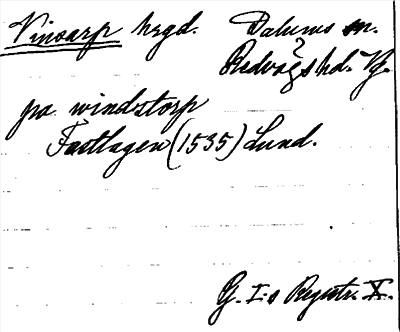 Vinsarp hrgd. Dalums sn.
?
Redvägs hd. Vg.
pa windstorp
Fastlagen (1535) Lund.
G. I:s Registr. X.